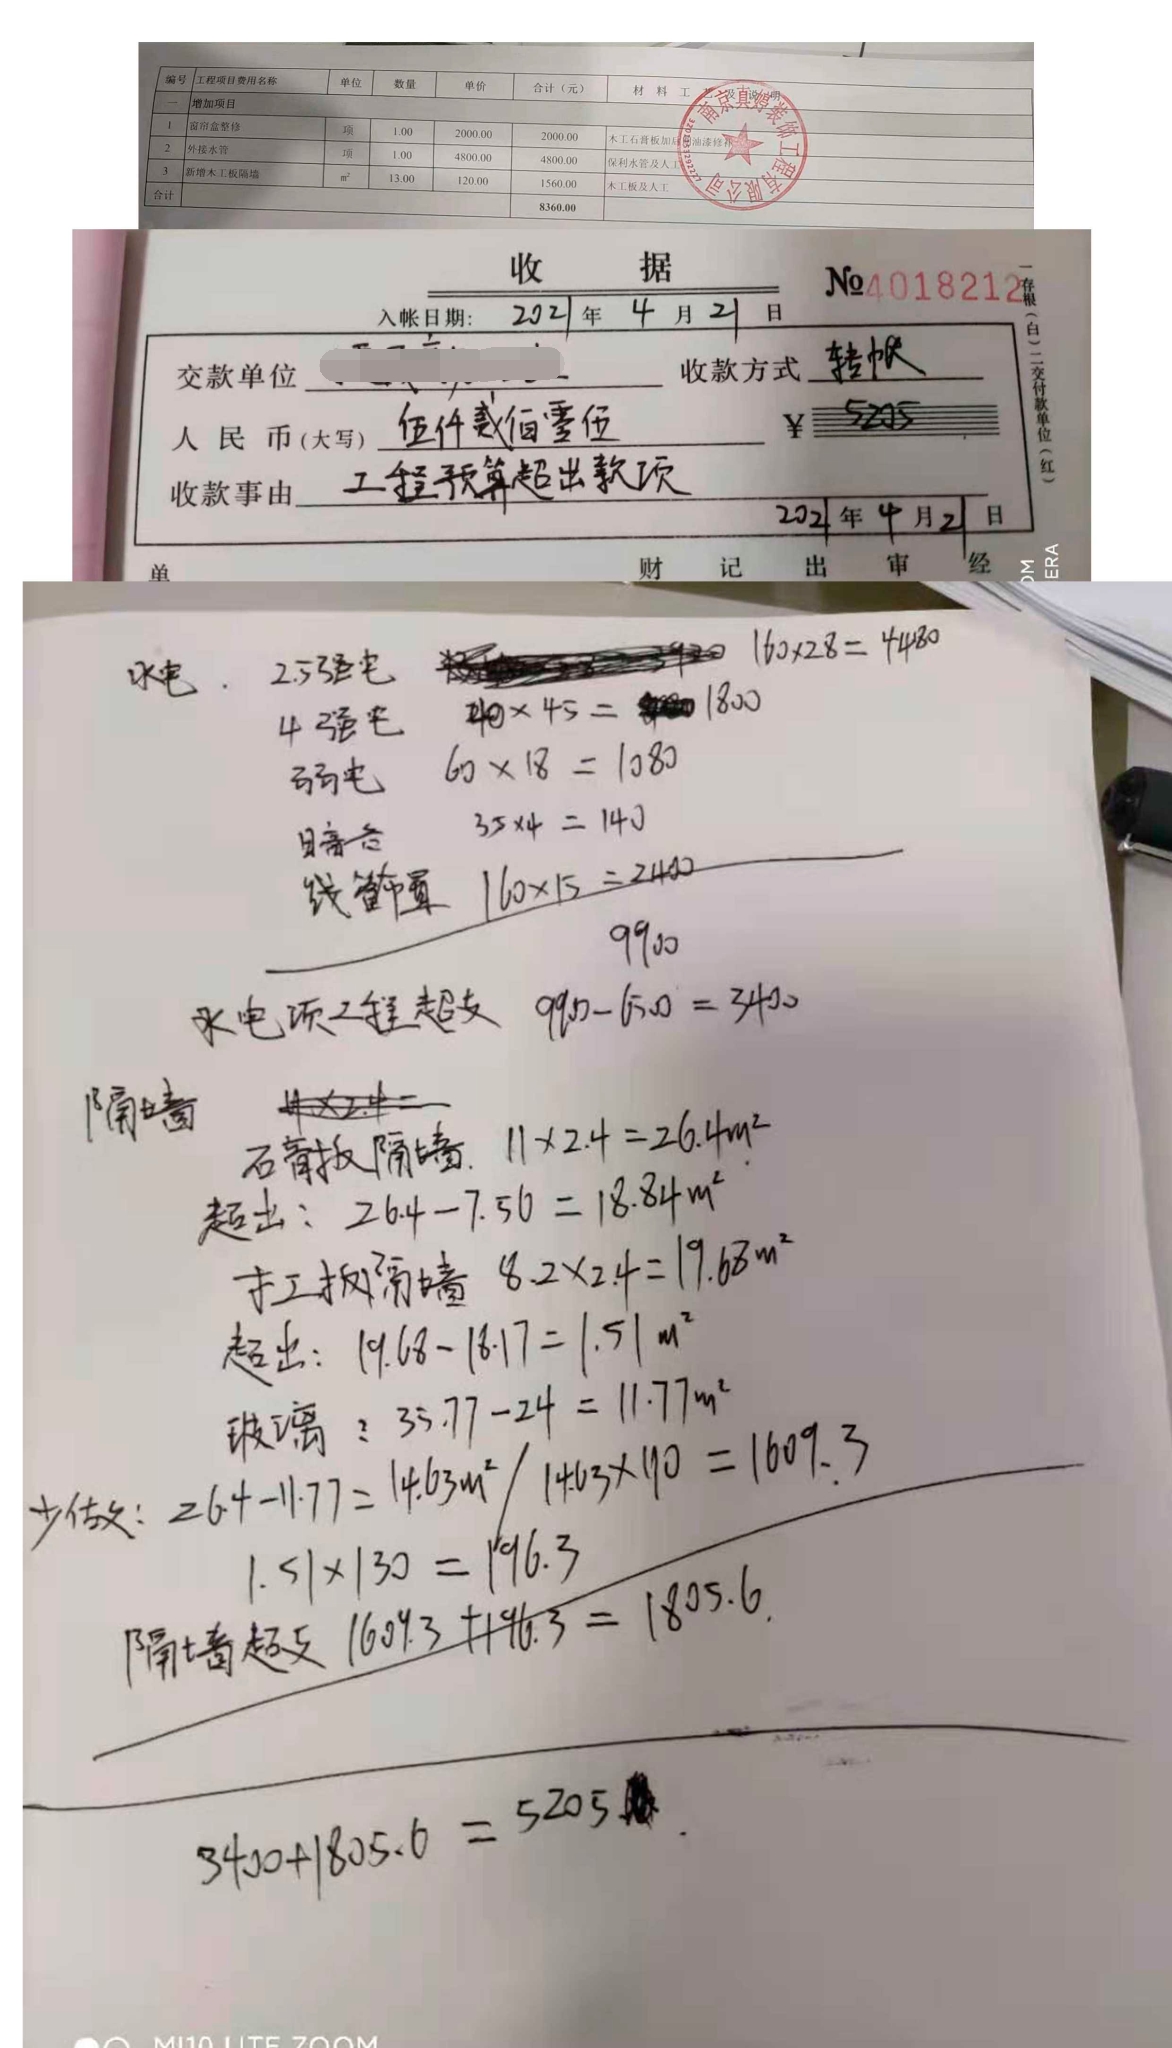 编号 工程项目费用名称 单位 数量 单价 合计（元） 材 料 工 艺 及 说 明
一 增加项目
1 窗帘盒整修 项 1.00 2000.00 2000.00 木工石膏板加
2 外接水管 项 1.00 4800.00 4800.00 保利水管及人工
3 新增木工板隔墙 m² 13.00 120.00 1560.00 木工板及人工
合计 8360.00
南京真婷装饰工程有限公司
收 据
№4018212
入帐日期: 2021年 4 月 21 日
交款单位 收款方式 转帐
人民币(大写) 伍仟贰佰零伍 ¥ 5205
收款事由 工程预算超出款项
2021年 4 月 21 日
一存根(白)二交付款单位(红)
单 财 记 出 审 经
水电. 2.5强电 160×28=4480
4强电 40×45=1800
弱电 60×18=1080
暗合 35×4=140
线管布置 160×15=2400
9900
水电项工程超支 9900-6500=3400
隔墙 11×2.4=
石膏板隔墙. 11×2.4=26.4m²
超出: 26.4-7.56=18.84m²
木工板隔墙 8.2×2.4=19.68m²
超出: 19.68-18.17=1.51m²
玻璃: 35.77-24=11.77m²
少做: 26.4-11.77=14.63m²/14.63×110=1609.3
1.51×130=196.3
隔墙超支 1609.3+196.3=1805.6.
3400+1805.6=5205.
MI10 LITE ZOOM